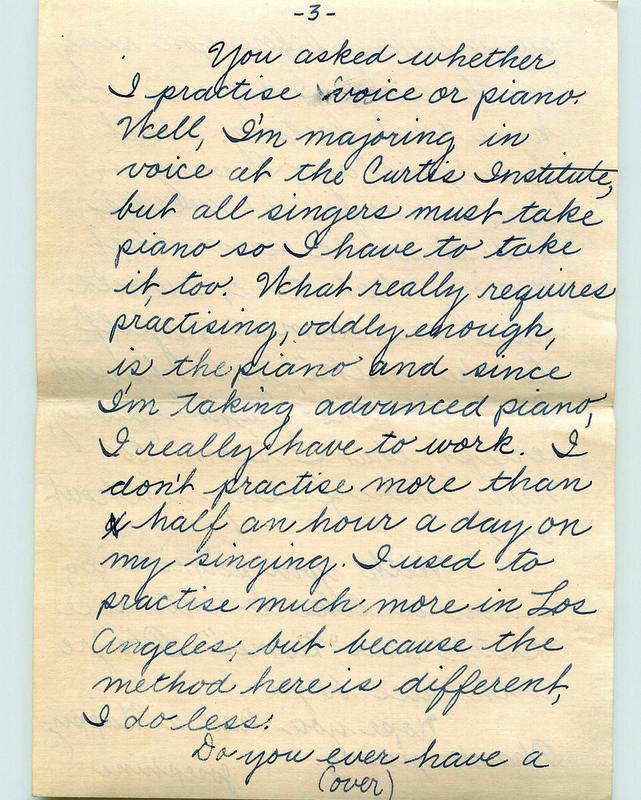 -3-
You asked whether
I practise voice or piano.
Well, I'm majoring in
voice at the Curtis Institute,
but all singers must take
piano so I have to take
it, too. What really requires
practising, oddly enough,
is the piano and since
I'm taking advanced piano,
I really have to work. I
don't practise more than
half an hour a day on
my singing. I used to
practise much more in Los
Angeles, but because the
method here is different,
I do less.
Do you ever have a
(over)